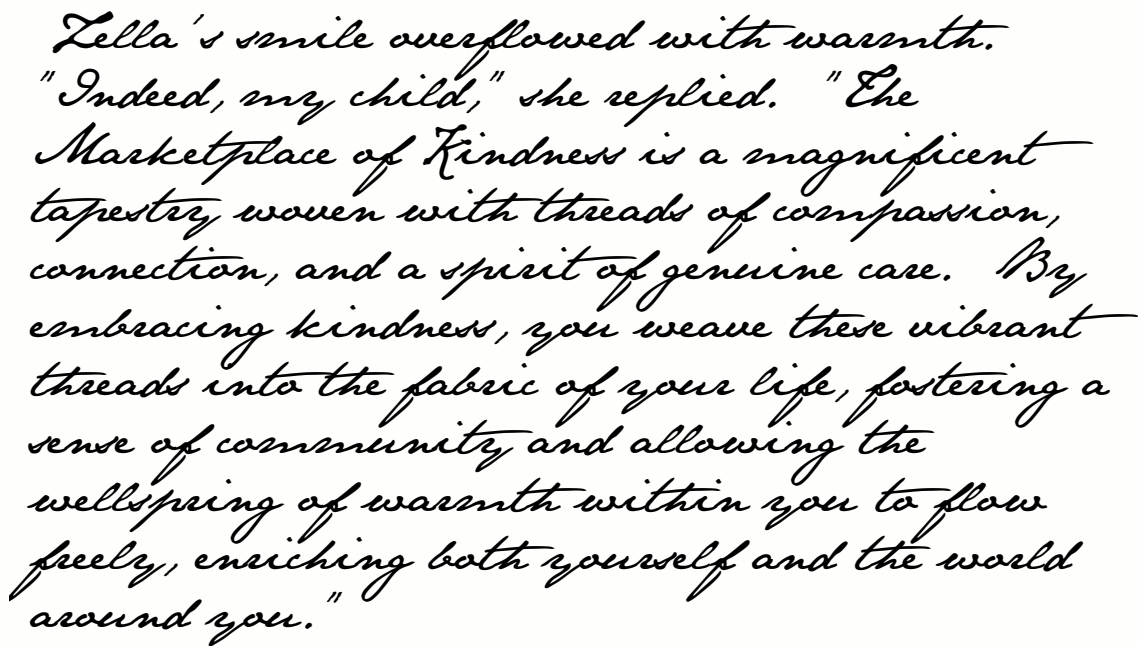 Zella's smile overflowed with warmth.
"Indeed, my child," she replied. "The
Marketplace of Kindness is a magnificent
tapestry woven with threads of compassion,
connection, and a spirit of genuine care. By
embracing kindness, you weave these vibrant
threads into the fabric of your life, fostering a
sense of community and allowing the
wellspring of warmth within you to flow
freely, enriching both yourself and the world
around you."